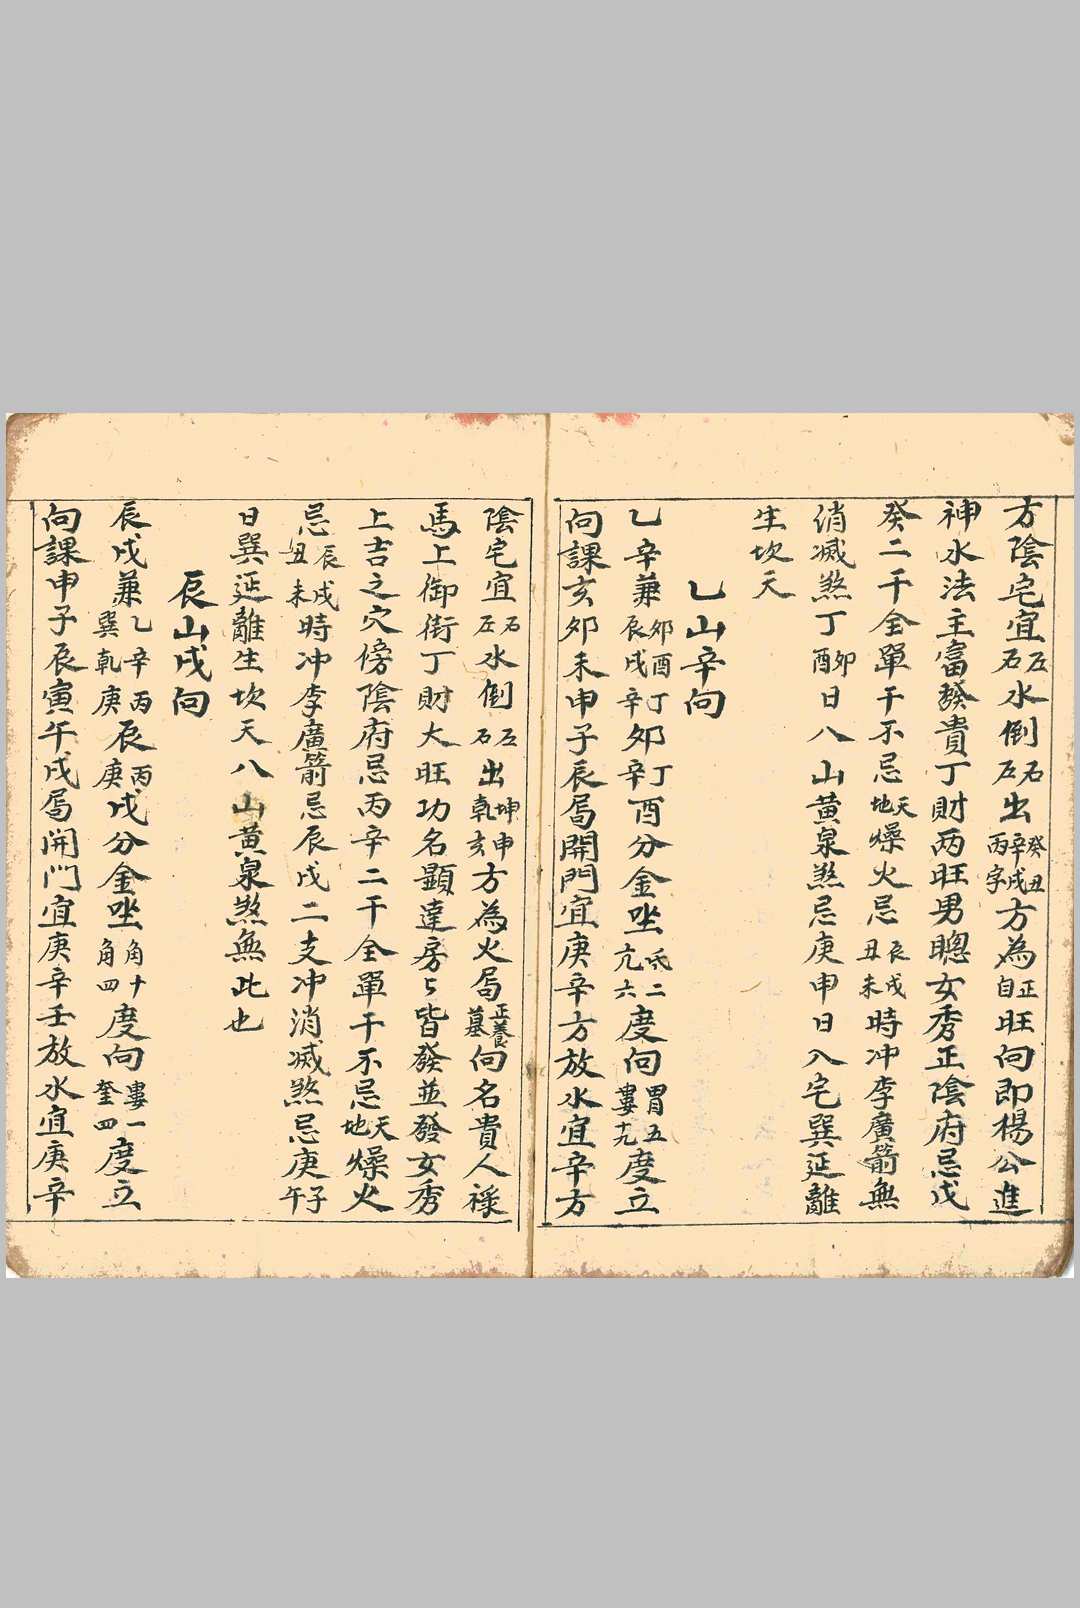 方陰宅宜左右水倒右左出癸丑辛戌丙字方為正自旺向即楊公進
神水法主富發貴丁財两旺男聰女秀正陰府忌戊
癸二干全單干不忌天地燥火忌辰戌丑未時冲李廣箭無
消滅煞丁卯酉日八山黃泉煞忌庚申日入宅巽延離
生坎天
乙山辛向
乙辛兼卯酉辰戌丁辛卯丁辛酉分金坐氐二亢六度向胃五婁十九度立
向課亥卯未申子辰局開門宜庚辛方放水宜辛方
陰宅宜右左水倒左右出坤申乾亥方為火局正養墓向名貴人祿
馬上御街丁財大旺功名顯達房房皆發並發女秀
上吉之穴傍陰府忌丙辛二干全單干不忌天地燥火
忌辰戌丑未時冲李廣箭忌辰戌二支冲消滅煞忌庚子午
日巽延離生坎天八山黃泉煞無此也
辰山戌向
辰戌兼乙辛巽乾丙庚辰丙庚戌分金坐角十角四度向婁一奎四度立
向課申子辰寅午戌局開門宜庚辛壬放水宜庚辛